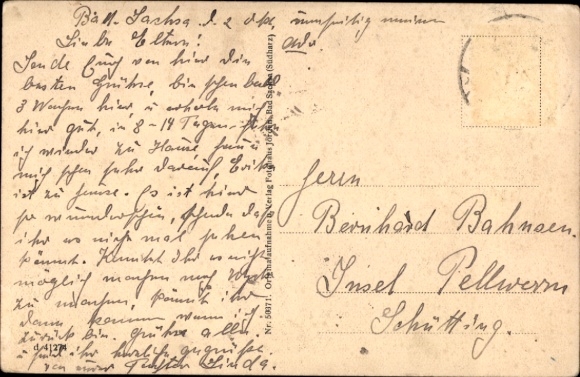 Bad Sachsa d. 2 Okt.
Liebe Eltern!
Sende Euch von hier die
besten Grüße, bin schon bald
3 Wochen hier u erhole mich
hier gut, in 8-14 Tagen
ich wieder zu Hause
mich schon sehr darauf,
ist zu Hause. Es ist hier
so wunderschön, schade daß
ihr es nicht mal sehen
könnt. Könnt Ihr es nicht
möglich machen nach
zu machen, könnt ihr
dann kommen wenn ich
zurück bin Grüße alle
u seid ihr herzlich gegrüßt
von eurer Tochter Linda.
umseitig meine
Adr.
d/4/274
Nr. 50371. Originalaufnahme u. Verlag Fotohaus Bad Sachsa (Südharz)
Herrn
Bernhard Bahnsen
Insel Pellworm
Schütting.